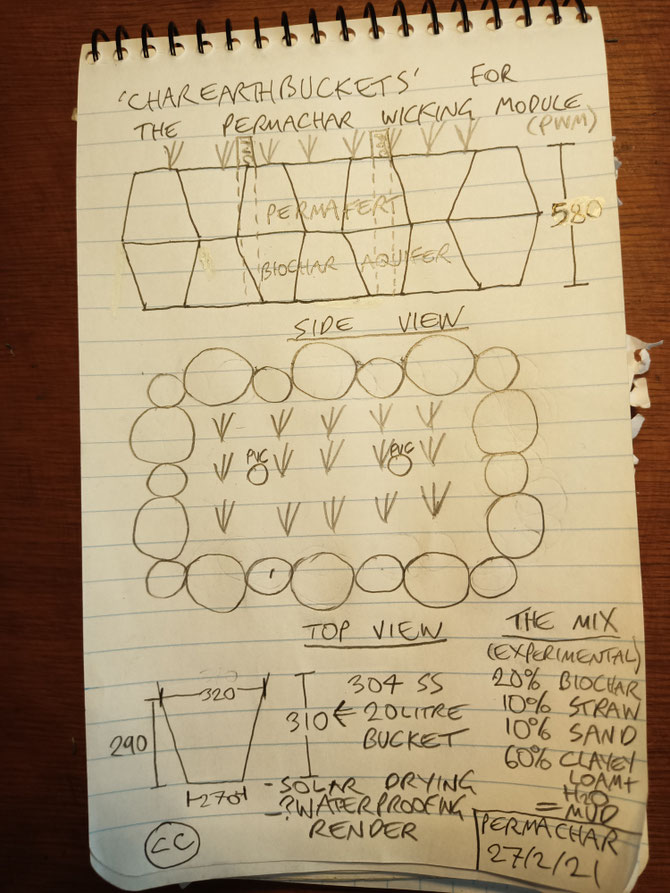 'CHAREARTHBUCKETS' FOR
THE PERMACHAR WICKING MODULE
(PWM)
PERMAFERT
580
BIOCHAR AQUIFER
SIDE VIEW
PVC PVC
TOP VIEW
THE MIX
(EXPERIMENTAL)
20% BIOCHAR
10% STRAW
10% SAND
60% CLAYEY
LOAM +
H2O
= MUD
320
290
270
310 ← 20 LITRE
304 SS
BUCKET
- SOLAR DRYING
- ?WATERPROOFING
RENDER
CC
PERMACHAR
27/2/21